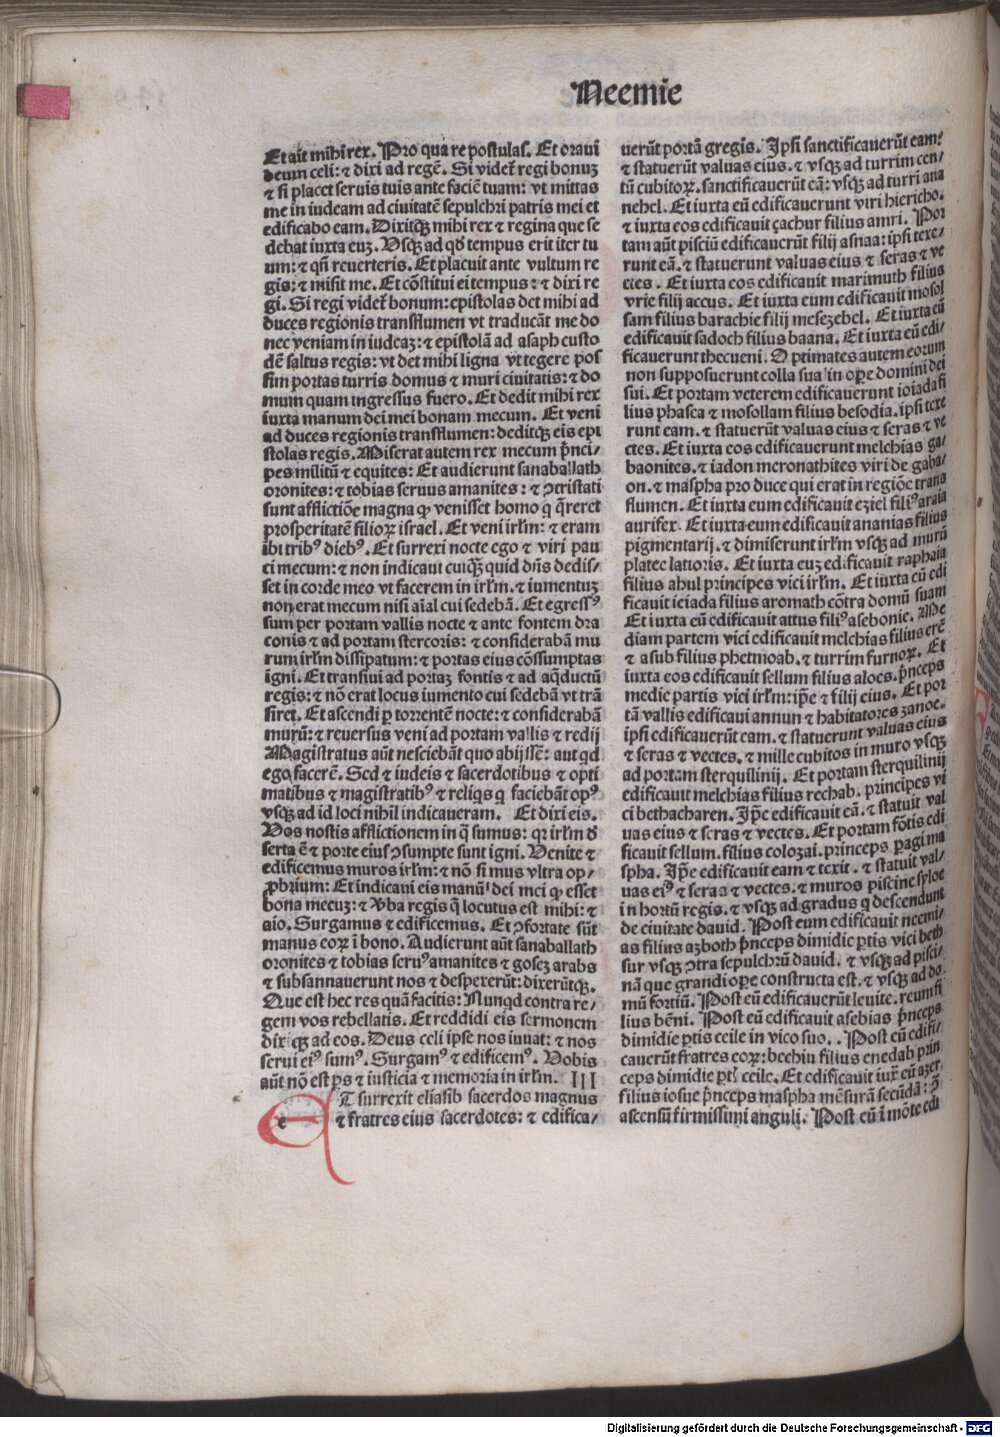 Neemie
Et ait mihi rex. Pro qua re postulas. Et oraui
deum celi: ⁊ dixi ad regē. Si videt̄ regi bonuꝫ
⁊ si placet seruis tuis ante faciē tuam: vt mittas
me in iudeam ad ciuitatē sepulchri patris mei et
edificabo eam. Dixitqꝫ mihi rex ⁊ regina que se
debat iuxta euꝫ. Usqꝫ ad qd̄ tempus erit iter tu
um: ⁊ qn̄ reuerteris. Et placuit ante vultum re
gis: ⁊ misit me. Et cōstitui ei tempus: ⁊ dixi re
gi. Si regi videt̄ bonum: epistolas det mihi ad
duces regionis transflumen vt traducāt me do
nec veniam in iudeaꝫ: ⁊ epistolā ad asaph custo
dē saltus regis: vt det mihi ligna vt tegere pos
sim portas turris domus ⁊ muri ciuitatis: ⁊ do
mum quam ingressus fuero. Et dedit mihi rex
iuxta manum dei mei bonam mecum. Et veni
ad duces regionis transflumen: deditqꝫ eis epi
stolas regis. Miserat autem rex mecum p̄nci/
pes militū ⁊ equites: Et audierunt sanaballath
oronites: ⁊ tobias seruus amanites: ⁊ ꝯtristati
sunt afflictiōe magna ꝙ venisset homo q̄ q̄reret
prosperitatē filioꝝ israel. Et veni irl̄m: ⁊ eram
ibi tribꝰ diebꝰ. Et surrexi nocte ego ⁊ viri pau
ci mecum: ⁊ non indicaui cuiqꝫ quid dn̄s dedis/
set in corde meo vt facerem in irl̄m. ⁊ iumentuꝫ
non erat mecum nisi aīal cui sedebā. Et egressꝰ
sum per portam vallis nocte ⁊ ante fontem dra
conis ⁊ ad portam stercoris: ⁊ considerabā mu
rum irl̄m dissipatum: ⁊ portas eius cōssumptas
igni. Et transiui ad portaꝫ fontis ⁊ ad aq̄ductū
regis: ⁊ nō erat locus iumento cui sedebā vt trā
siret. Et ascendi ꝑ torrentē nocte: ⁊ considerabā
murū: ⁊ reuersus veni ad portam vallis ⁊ redij
Magistratus aūt nesciebāt quo abijssē: aut qd
ego facerē. Sed ⁊ iudeis ⁊ sacerdotibus ⁊ opti
matibus ⁊ magistratibꝰ ⁊ reliqs q faciebāt opꝰ
vsqꝫ ad id loci nihil indicaueram. Et dixi eis.
Uos nostis afflictionem in q̄ sumus: qr irl̄m d̄
serta ē ⁊ porte eius ꝯsumpte sunt igni. Uenite ⁊
edificemus muros irl̄m: ⁊ nō simus vltra op/
ꝓbrium: Et indicaui eis manū dei mei ꝙ esset
bona mecuꝫ: ⁊ v̄ba regis q̄ locutus est mihi: ⁊
aio. Surgamus ⁊ edificemus. Et ꝯfortate sūt
manus eoꝝ ī bono. Audierunt aūt sanaballath
oronites ⁊ tobias seruꝰ amanites ⁊ goseꝫ arabs
⁊ subsannauerunt nos ⁊ despexerūt: dixerūtqꝫ.
Que est hec res quā facitis: Nunqd contra re/
gem vos rebellatis. Et reddidi eis sermonem
dixiqꝫ ad eos. Deus celi ipse nos iuuat: ⁊ nos
serui eiꝰ sumꝰ. Surgamꝰ ⁊ edificemꝰ. Uobis
aūt nō est ꝑs ⁊ iusticia ⁊ memoria in irl̄m. III
eT surrexit eliasib sacerdos magnus
⁊ fratres eius sacerdotes: ⁊ edifica/
uerūt portā gregis. Ipsi sanctificauerūt eam:
⁊ statuerūt valuas eius. ⁊ vsqꝫ ad turrim cen/
tū cubitoꝝ. sanctificauerūt eā: vsqꝫ ad turri ana
nehel. Et iuxta eū edificauerunt viri hiericho.
⁊ iuxta eos edificauit çachur filius amri. Por
tam aūt pisciū edificauerūt filij asnaa: ipsi texe/
runt eā. ⁊ statuerunt valuas eius ⁊ seras ⁊ ve
ctes. Et iuxta eos edificauit marimuth filius
vrie filij accus. Et iuxta eum edificauit mosol
lam filius barachie filij mesezebel. Et iuxta eū
edificauit sadoch filius baana. Et iuxta eū edi/
ficauerunt thecueni. Optimates autem eorum
non supposuerunt colla sua in oꝑe domini dei
sui. Et portam veterem edificauerunt ioiada fi
lius phasea ⁊ mosollam filius besodia. ipsi texe
runt eam. ⁊ statuerūt valuas eius ⁊ seras ⁊ ve
ctes. Et iuxta eos edificauerunt melchias ga/
baonites. ⁊ iadon meronathites viri de gaba/
on. ⁊ maspha pro duce qui erat in regiōe trans
flumen. Et iuxta eum edificauit eziel filiꝰ araia
aurifex. Et iuxta eum edificauit ananias filius
pigmentarij. ⁊ dimiserunt irl̄m vsqꝫ ad murū
platee latioris. Et iuxta euꝫ edificauit raphaia
filius ahul principes vici irl̄m. Et iuxta eū edi
ficauit ieiada filius aromath cōtra domū suam
Et iuxta eū edificauit attus filiꝰ asebonie. Me
diam partem vici edificauit melchias filius erē
⁊ asub filius phetmoab. ⁊ turrim furnoꝝ. Et
iuxta eos edificauit sellum filius aloes. p̄nceps
medie partis vici irl̄m: ip̄e ⁊ filij eius. Et por
tā vallis edificaui annun ⁊ habitatores zanoe.
ipsi edificauerūt eam. ⁊ statuerunt valuas eius
⁊ seras ⁊ vectes. ⁊ mille cubitos in muro vsqꝫ
ad portam sterquilinij. Et portam sterquilinij
edificauit melchias filius rechab. principes vi
ci bethacharen. Ip̄e edificauit eā. ⁊ statuit val
uas eius ⁊ seras ⁊ vectes. Et portam fōtis edi
ficauit sellum. filius colozai. princeps pagi ma
spha. Ip̄e edificauit eam ⁊ texit. ⁊ statuit val/
uas eiꝰ ⁊ seras ⁊ vectes. ⁊ muros piscine syloe
in hortū regis. ⁊ vsqꝫ ad gradus q descendunt
de ciuitate dauid. Post eum edificauit neemi/
as filius azboth p̄nceps dimidie ꝑtis vici beth
sur vsqꝫ ꝯtra sepulchrū dauid. ⁊ vsqꝫ ad pisci/
nā que grandi oꝑe constructa est. ⁊ vsqꝫ ad do
mū fortiū. Post eū edificauerūt leuite. reum fi
lius bēni. Post eū edificauit asebias p̄nceps
dimidie ꝑtis ceile in vico suo.. Post eū edifi/
cauerūt fratres eoꝝ: bechiu filius enedab prin
ceps dimidie ꝑtꝭ ceile. Et edificauit iux̄ eū azer
filius iosue p̄nceps maspha mēsurā secūdā: ꝯ̄
ascensū firmissimi anguli. Post eū ī mōte edi
Digitalisierung gefördert durch die Deutsche Forschungsgemeinschaft - DFG